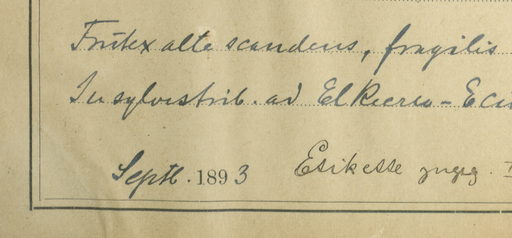 Frutex alte scandens, fragilis
In sylvestrib. ad El Recreo - Ecu
Septb. 1893 Etikette